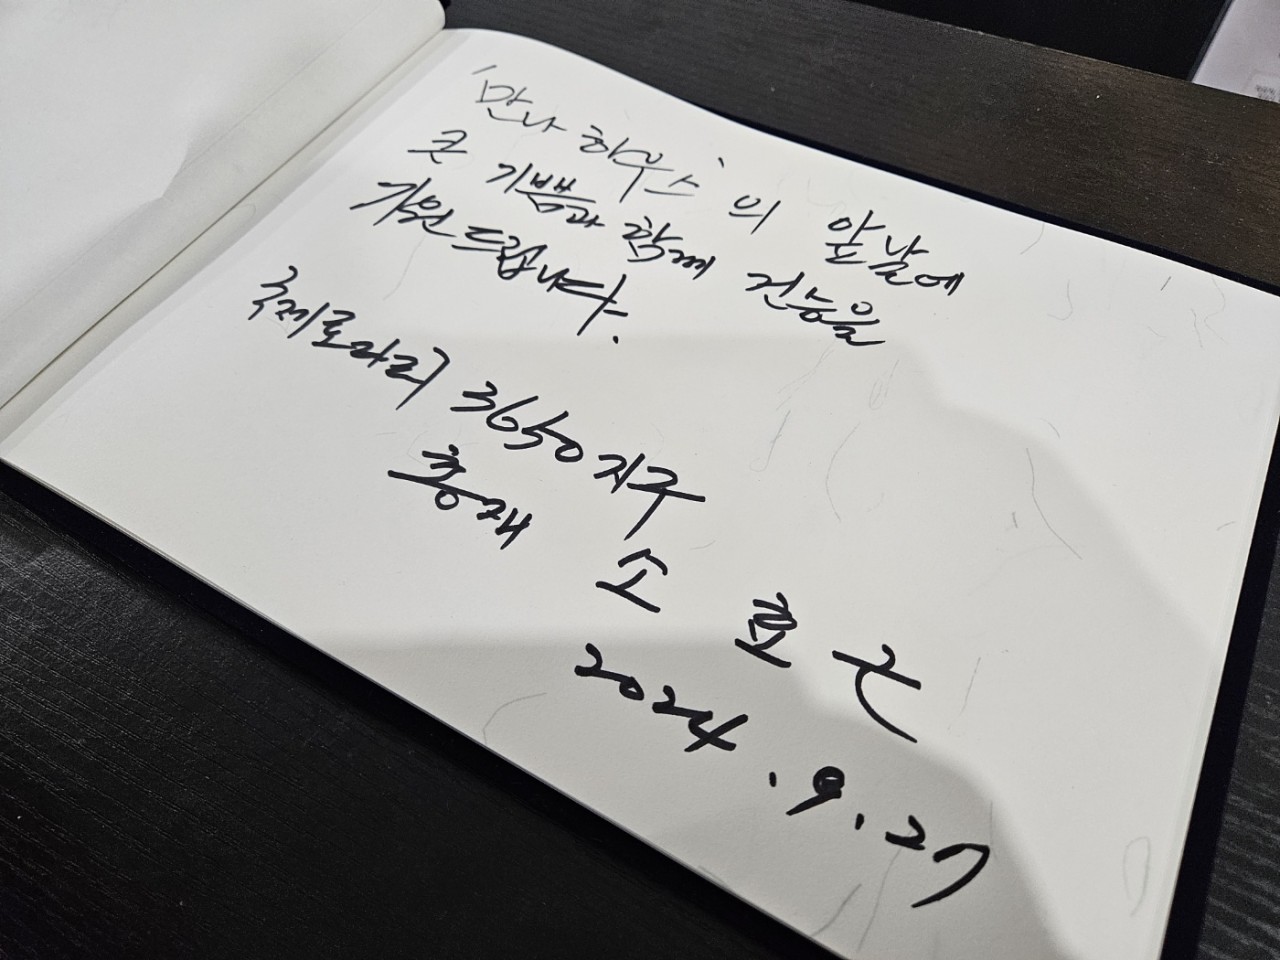 '만나 하우스'의 앞날에
큰 기쁨과 함께 건승을
기원드립니다.
국제로타리 3650지구
총재 소 호 근
2024.9.27